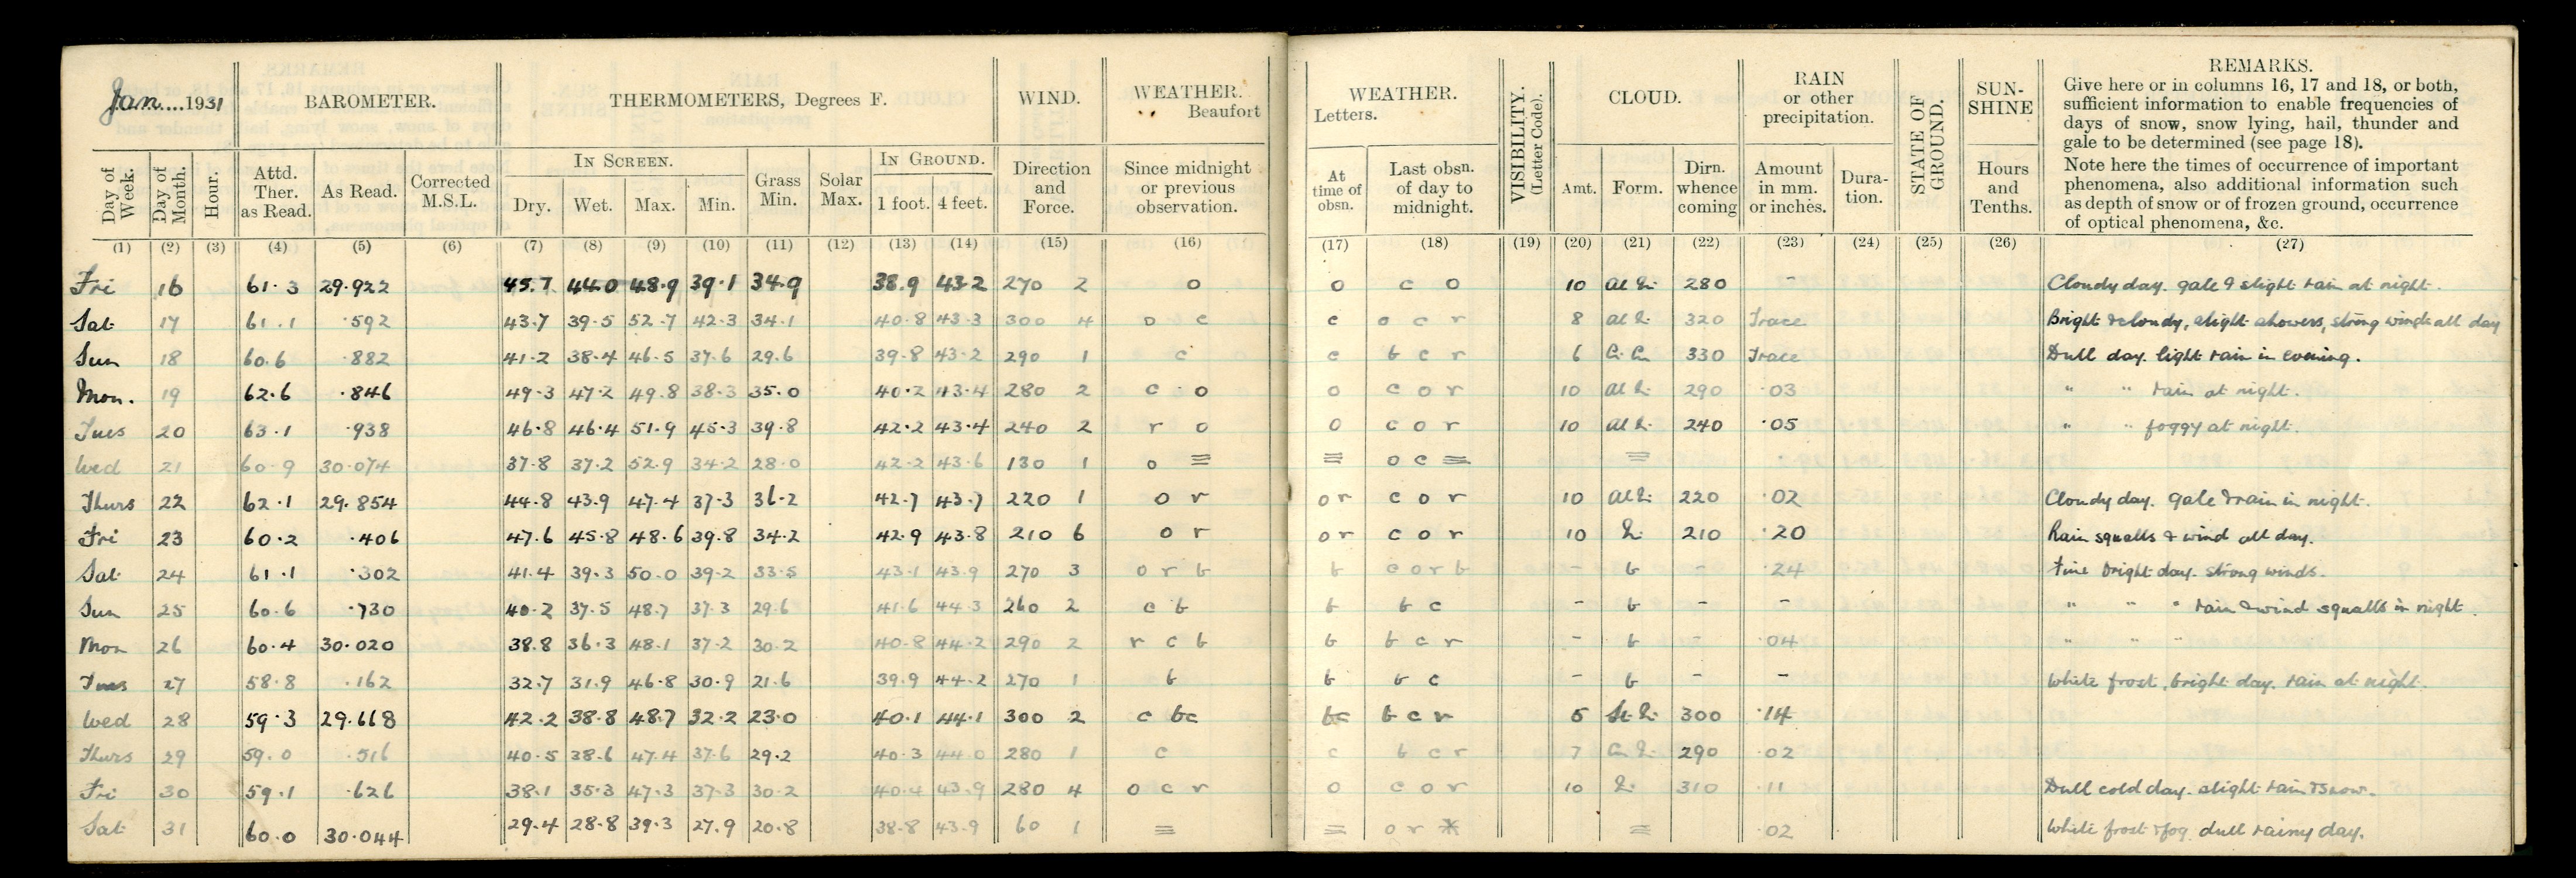 Jan....1931 BAROMETER. THERMOMETERS, Degrees F. WIND. WEATHER. Beaufort WEATHER. Letters. VISIBILITY. (Letter Code). CLOUD. RAIN or other precipitation. STATE OF GROUND. SUN-SHINE REMARKS.
Give here or in columns 16, 17 and 18, or both,
sufficient information to enable frequencies of
days of snow, snow lying, hail, thunder and
gale to be determined (see page 18).
Note here the times of occurrence of important
phenomena, also additional information such
as depth of snow or of frozen ground, occurrence
of optical phenomena, &c.
IN SCREEN. IN GROUND.
Day of Week. Day of Month. Hour. Attd. Ther. as Read. As Read. Corrected M.S.L. Dry. Wet. Max. Min. Grass Min. Solar Max. 1 foot. 4 feet. Direction and Force. Since midnight or previous observation. At time of obsn. Last obsn. of day to midnight. Amt. Form. Dirn. whence coming Amount in mm. or inches. Dura-tion. Hours and Tenths.
(1) (2) (3) (4) (5) (6) (7) (8) (9) (10) (11) (12) (13) (14) (15) (16) (17) (18) (19) (20) (21) (22) (23) (24) (25) (26) (27)
Fri 16 61.3 29.922 45.7 44.0 48.9 39.1 34.9 38.9 43.2 270 2 o o c o 10 Al St. 280 - Cloudy day. gale & slight rain at night.
Sat 17 61.1 .592 43.7 39.5 52.7 42.3 34.1 40.8 43.3 300 4 o c c o c r 8 Al St. 320 Trace Bright & cloudy, slight showers, strong winds all day
Sun 18 60.6 .882 41.2 38.4 46.5 37.6 29.6 39.8 43.2 290 1 c c b c r 6 Ci. Cu 330 Trace Dull day. light rain in evening.
Mon. 19 62.6 .846 49.3 47.2 49.8 38.3 35.0 40.2 43.4 280 2 c o o c o r 10 Al St. 290 .03 " " rain at night.
Tues 20 63.1 .938 46.8 46.4 51.9 45.3 39.8 42.2 43.4 240 2 r o o c o r 10 Al St. 240 .05 " " foggy at night.
Wed 21 60.9 30.074 37.8 37.2 52.9 34.2 28.0 42.2 43.6 130 1 o ≡ ≡ o c ≡ ≡
Thurs 22 62.1 29.854 44.8 43.9 47.4 37.3 36.2 42.7 43.7 220 1 o r o r c o r 10 Al St. 220 .02 Cloudy day. gale & rain in night.
Fri 23 60.2 .406 47.6 45.8 48.6 39.8 34.2 42.9 43.8 210 6 o r o r c o r 10 St. 210 .20 Rain squalls & wind all day.
Sat 24 61.1 .302 41.4 39.3 50.0 39.2 33.5 43.1 43.9 270 3 o r b b c o r b - b - .24 Fine bright day. strong winds.
Sun 25 60.6 .730 40.2 37.5 48.7 37.3 29.6 41.6 44.3 260 2 c b b b c - b - - " " " rain & wind squalls in night.
Mon 26 60.4 30.020 38.8 36.3 48.1 37.2 30.2 40.8 44.2 290 2 r c b b b c r - b - .04 " " "
Tues 27 58.8 .162 32.7 31.9 46.8 30.9 21.6 39.9 44.2 270 1 b b b c - b - - White frost, bright day. rain at night.
Wed 28 59.3 29.668 42.2 38.8 48.7 32.2 23.0 40.1 44.1 300 2 c bc bc b c r 5 St. 300 .14
Thurs 29 59.0 .516 40.5 38.6 47.4 37.6 29.2 40.3 44.0 280 1 c c b c r 7 Cu St. 290 .02
Fri 30 59.1 .626 38.1 35.3 47.3 37.3 30.2 40.4 43.9 280 4 o c r o c o r 10 St. 310 .11 Dull cold day. slight rain & snow.
Sat 31 60.0 30.044 29.4 28.8 39.3 27.9 20.8 38.8 43.9 60 1 ≡ ≡ o r * ≡ .02 White frost & fog. dull rainy day.